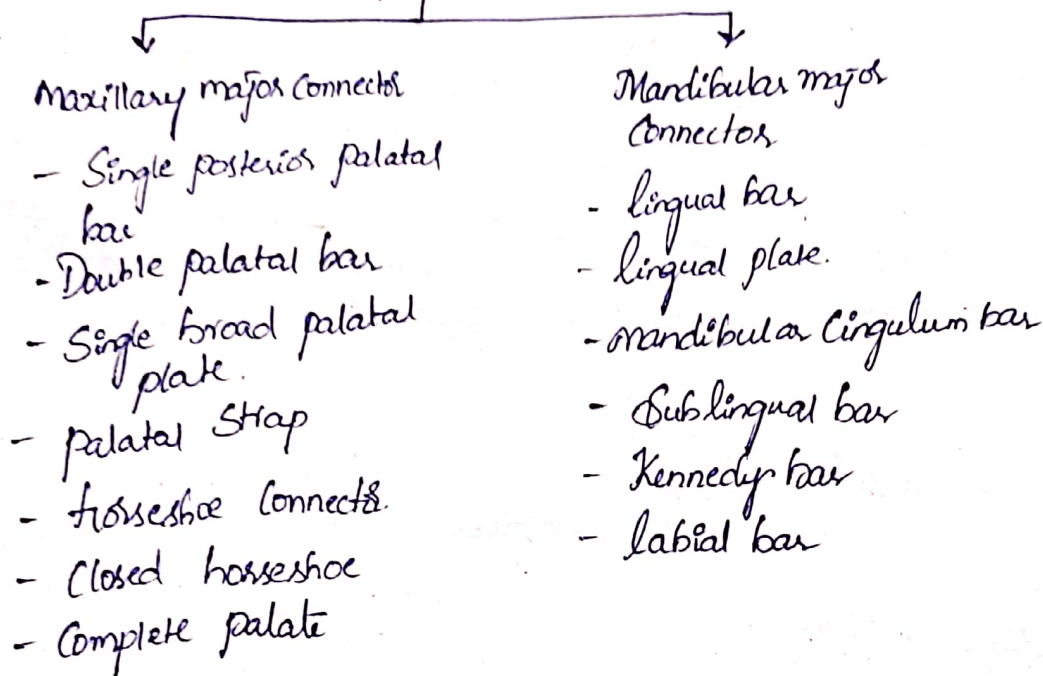 Maxillary major connector
- Single posterior palatal
bar
- Double palatal bar
- Single broad palatal
plate.
- palatal strap
- horseshoe connector.
- Closed horseshoe
- Complete palate
Mandibular major
Connector
- lingual bar
- lingual plate.
- mandibular Cingulum bar
- Sublingual bar
- Kennedy bar
- labial bar